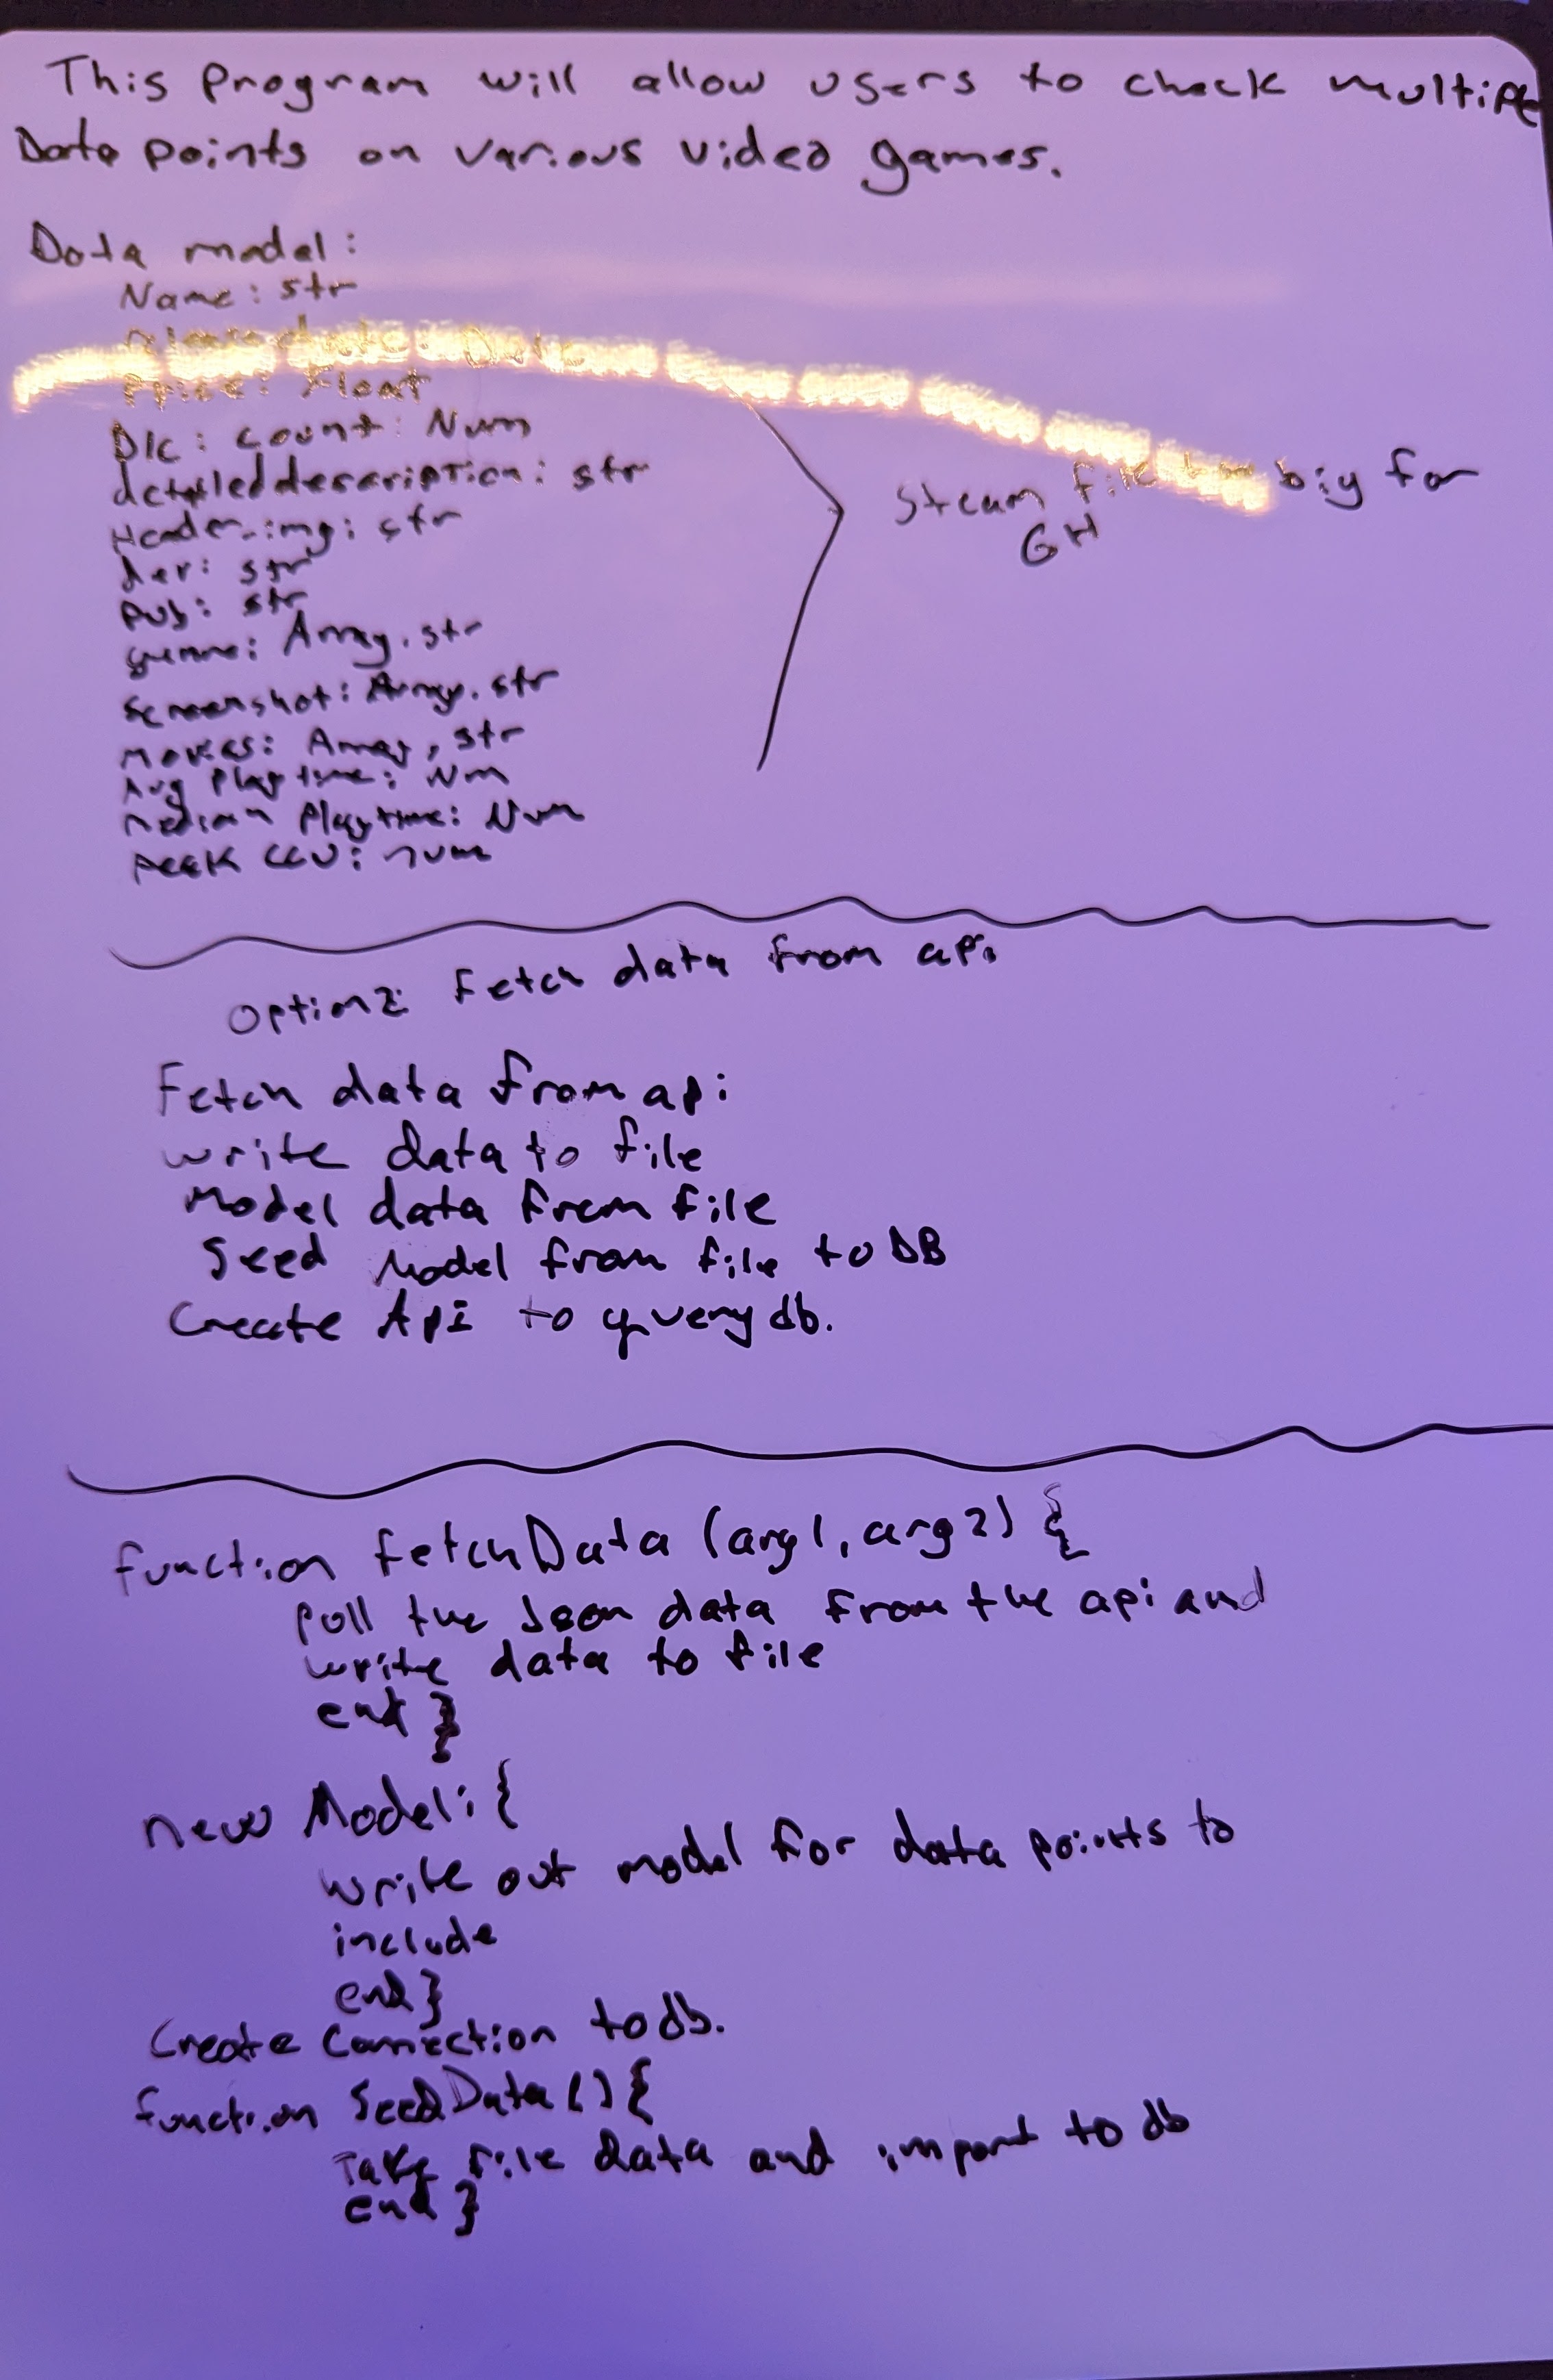 This program will allow users to check multiple
Data points on various video games.
Data model:
Name: str
Date
Price: Float
Dlc: count: Num
detailed description: str
Header-img: str
dev: str
pub: str
genre: Array. str
Screenshot: Array. str
Movies: Array, str
Avg Playtime: Num
Median Playtime: Num
peek CCU: num
Steam file too big for
GH
Option 2: Fetch data from api
Fetch data from api
write data to file
Model data from file
Seed Model from file to DB
Create Api to query db.
function fetchData (arg1, arg2) {
pull the Json data from the api and
write data to file
end }
new Model: {
write out model for data points to
include
end }
Create Connection to db.
function SeedData () {
Take file data and import to db
end }